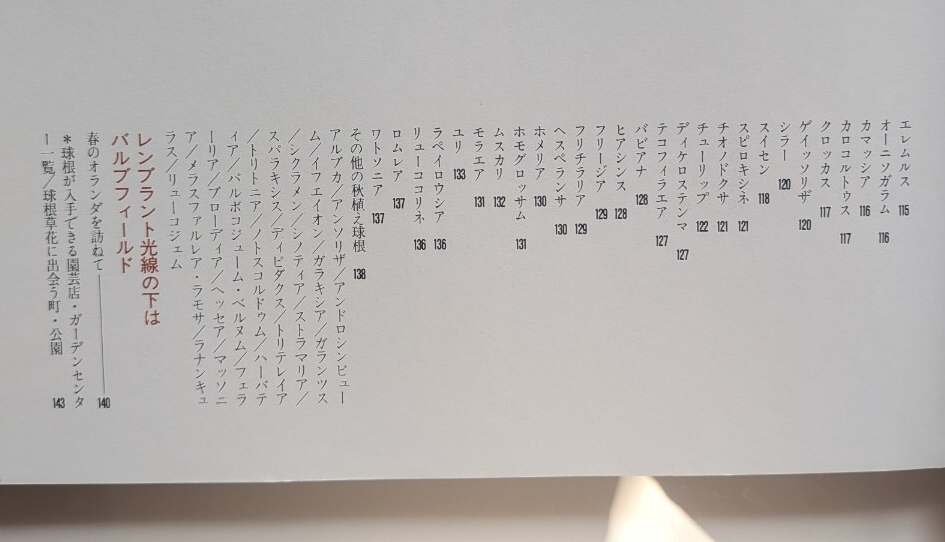 エレムルス 115
オーニソガラム 116
カマッシア 116
カロコルトウス 117
クロッカス 117
ゲイッソリザ 120
シラー 120
スイセン 118
スピロキシネ 121
チオノドクサ 121
チューリップ 122
ディケロステンマ 127
テコフィラエア 127
バビアナ 128
ヒアシンス 128
フリージア 129
フリチラリア 129
ヘスペランサ 130
ホメリア 130
ホモグロッサム 131
ムスカリ 132
モラエア 131
ユリ 133
ラペイロウシア 136
リューココリネ 136
ロムレア 137
ワトソニア 137
その他の秋植え球根 138
アルブカ/アンソリザ/アンドロシンビュー
ム/イフエイオン/ガラキシア/ガランツス
/シクラメン/シノティア/ストラマリア/
スパラキシス/ディピダクス/トリテレイア
/トリトニア/ノトスコルドウム/ハーバテ
ィア/バルボコジューム・ベルヌム/フェラ
ーリア/ブローディア/ヘッセア/マッソニ
ア/メラスファルレア・ラモサ/ラナンキュ
ラス/リューコジェム
レンブラント光線の下は
バルブフィールド
春のオランダを訪ねて 140
*球根が入手できる園芸店・ガーデンセンタ
ー一覧/球根草花に出会う町・公園 143